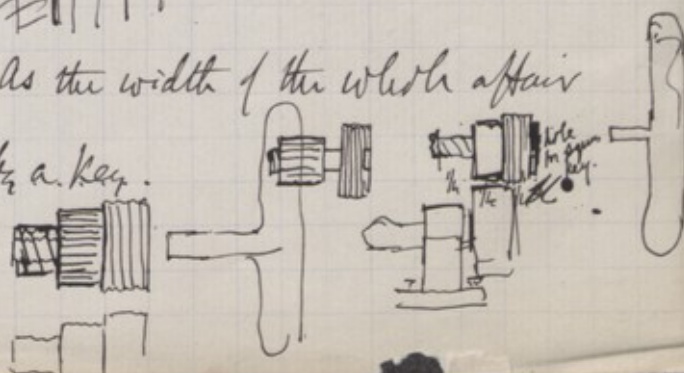 As the width of the whole affair
a key.
hole
for
key.